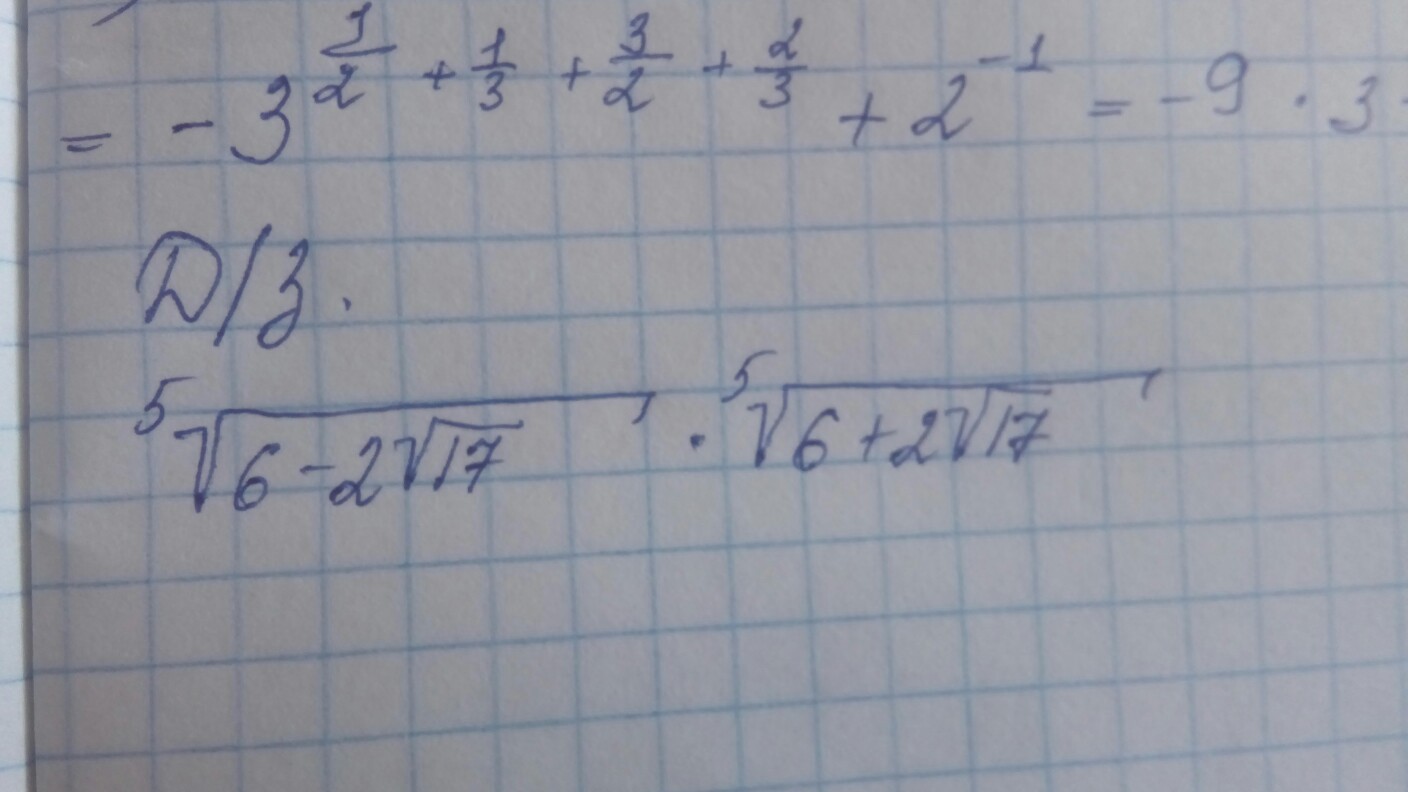 = -3^{\frac{1}{2} + \frac{1}{3} + \frac{3}{2} + \frac{2}{3}} + 2^{-1} = -9 · 3
Д/з.
\sqrt[5]{6-2\sqrt{17}} · \sqrt[5]{6+2\sqrt{17}}